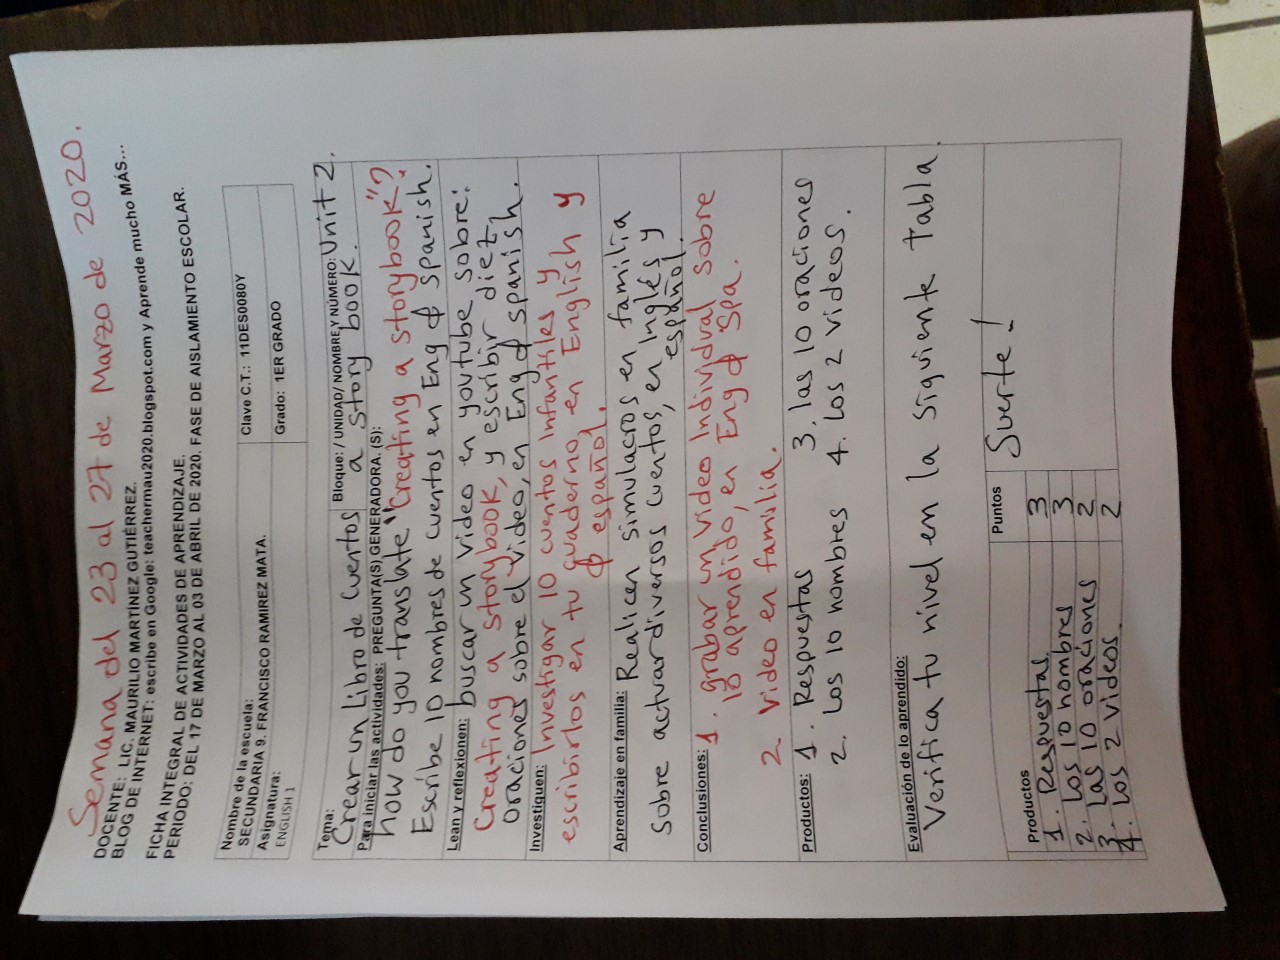 Semana del 23 al 27 de Marzo de 2020.
DOCENTE: LIC. MAURILIO MARTÍNEZ GUTIÉRREZ.
BLOG DE INTERNET: escribe en Google: teachermau2020.blogspot.com y Aprende mucho MÁS...
FICHA INTEGRAL DE ACTIVIDADES DE APRENDIZAJE.
PERIODO: DEL 17 DE MARZO AL 03 DE ABRIL DE 2020. FASE DE AISLAMIENTO ESCOLAR.
Nombre de la escuela:
SECUNDARIA 9. FRANCISCO RAMIREZ MATA.
Clave C.T.: 11DES0080Y
Asignatura:
ENGLISH 1
Grado: 1ER GRADO
Tema:
Crear un Libro de cuentos
Bloque: / UNIDAD/ NOMBRE Y NÚMERO: Unit 2.
a story book.
Para iniciar las actividades: PREGUNTA(S) GENERADORA. (S):
how do you translate "Creating a storybook"?
Escribe 10 nombres de cuentos en Eng & Spanish.
Lean y reflexionen: buscar un video en youtube sobre:
Creating a storybook, y escribir diez
oraciones sobre el video, en Eng & spanish.
Investiguen: Investigar 10 cuentos Infantiles y
escribirlos en tu cuaderno en English y
& español.
Aprendizaje en familia: Realicen simulacros en familia
sobre actuar diversos cuentos, en Inglés y
español.
Conclusiones: 1. grabar un video Individual sobre
lo aprendido, en Eng & Spa.
2 video en familia.
Productos: 1. Respuestas 3. las 10 oraciones
2. Los 10 nombres 4. Los 2 videos.
Evaluación de lo aprendido:
Verifica tu nivel en la siguiente tabla.
Productos Puntos
1. Respuestas. 3
2. Los 10 nombres 3
3. Las 10 oraciones 2
4. Los 2 videos. 2
Suerte!